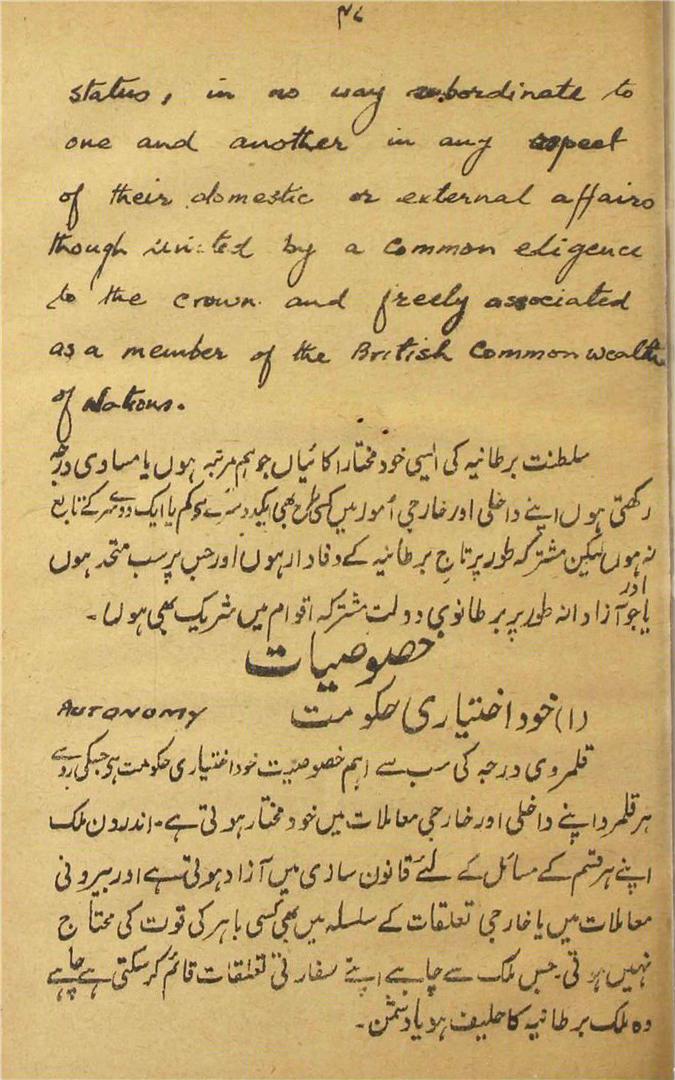 ۴۸
status, in no way subordinate to
one and another in any aspect
of their domestic or external affairs
though united by a common eligence
to the crown and freely associated
as a member of the British Commonwealth
of Nations.
سلطنت برطانیہ کی ایسی خود مختار اکائیاں جو ہم مرتبہ ہوں یا مساوی درجہ
رکھتی ہوں اپنے داخلی اور خارجی اُمور میں کسی طرح بھی یکدوسرے سے کم یا ایک دوسرے کے تابع
نہ ہوں لیکن مشترکہ طور پر تاجِ برطانیہ کے وفادار ہوں اور جس پر سب متحد ہوں
اور
یا جو آزادانہ طور پر برطانوی دولت مشترکہ اقوام میں شریک بھی ہوں۔
خصوصیات
(۱) خود اختیاری حکومت AUTONOMY
قلمروی درجہ کی سب سے اہم خصوصیت خود اختیاری حکومت ہے جسکی رو سے
ہر قلمرو اپنے داخلی اور خارجی معاملات میں خود مختار ہوتی ہے۔ اندرون ملک
اپنے ہر قسم کے مسائل کے لئے قانون سازی میں آزاد ہوتی ہے اور بیرونی
معاملات میں یا خارجی تعلقات کے سلسلہ میں بھی کسی باہر کی قوت کی محتاج
نہیں ہوتی۔ جس ملک سے چاہے اپنے سفارتی تعلقات قائم کر سکتی ہے چاہے
وہ ملک برطانیہ کا حلیف ہو یا دشمن۔